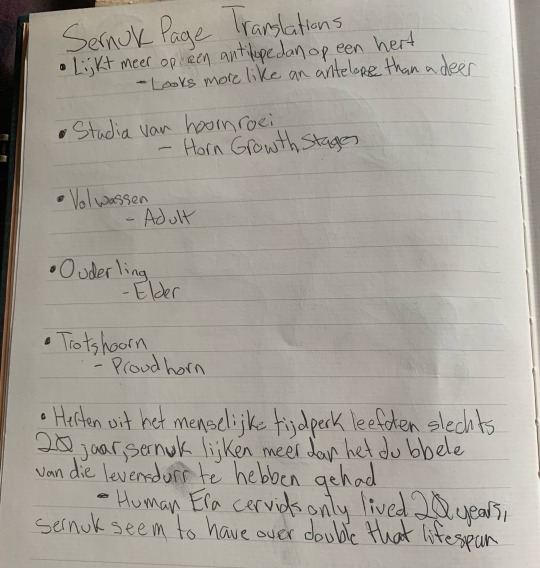 Sernuk Page Translations
• Lijkt meer op een antilope dan op een hert
- Looks more like an antelope than a deer
• Stadia van hoorn roei
- Horn Growth Stages
• Volwassen
- Adult
• Ouderling
- Elder
• Trotshoorn
- Proudhorn
• Herten uit het menselijke tijdperk leefden slechts
20 jaar, sernuk lijken meer dan het dubbele
van die levensduur te hebben gehad
- Human Era cervids only lived 20 years,
sernuk seem to have over double that lifespan